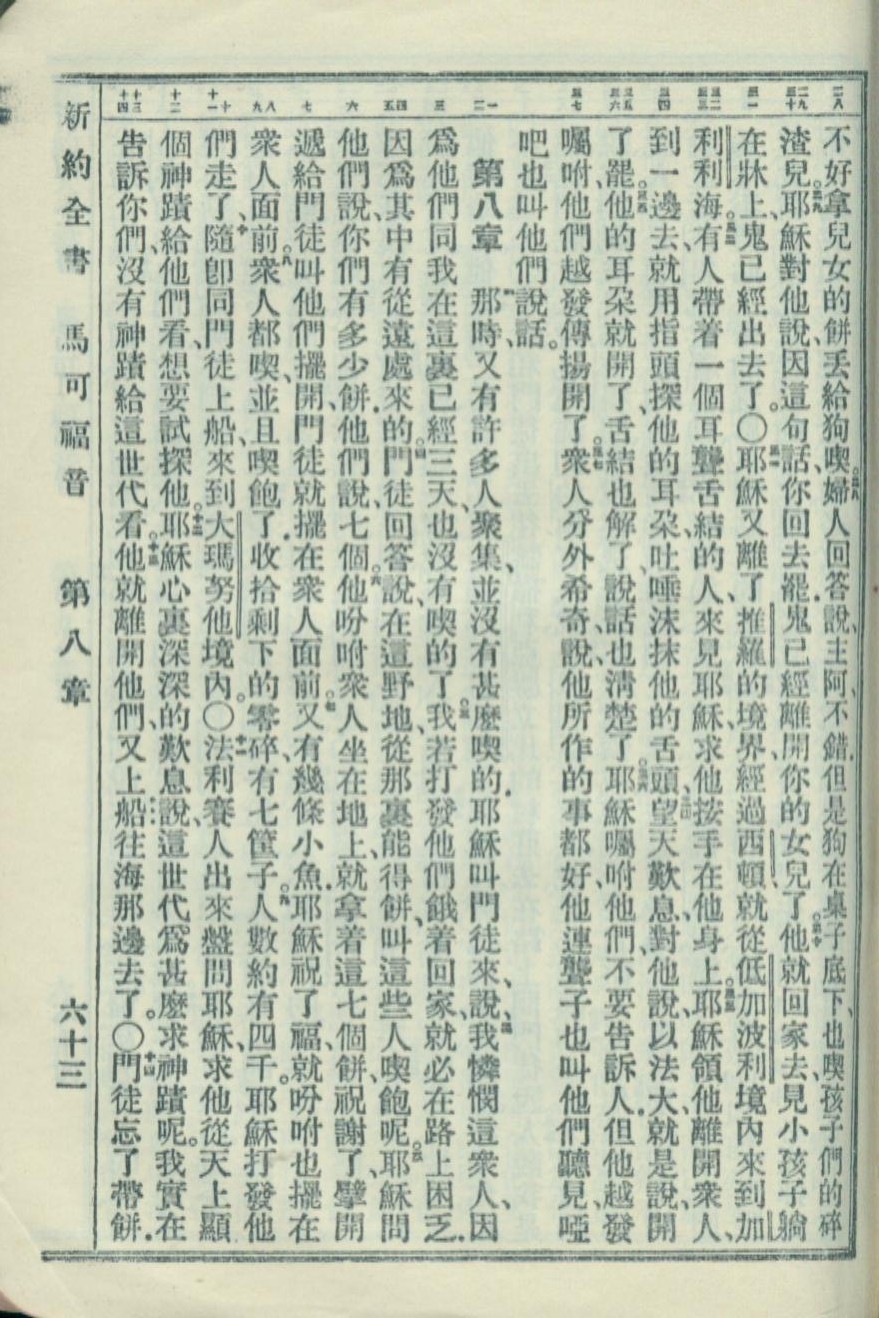 不好拿兒女的餅丢給狗喫婦人回答說、主阿、不錯、但是狗在桌子底下、也喫孩子們的碎
渣兒。耶穌對他說、因這句話、你回去罷、鬼已經離開你的女兒了。他就回家去、見小孩子躺
在牀上、鬼已經出去了。〇耶穌又離了推羅的境界、經過西頓、就從低加波利境內來到加
利利海。有人帶着一個耳聾舌結的人、來見耶穌、求他按手在他身上。耶穌領他離開衆人、
到一邊去、就用指頭探他的耳朶、吐唾沫抹他的舌頭、望天歎息、對他說、以法大、就是說、開
了罷。他的耳朶就開了、舌結也解了、說話也淸楚了。耶穌囑咐他們、不要告訴人、但他越發
囑咐、他們越發傳揚開了。衆人分外希奇、說、他所作的事都好、他連聾子也叫他們聽見、啞
吧也叫他們說話。
第八章 那時、又有許多人聚集、並沒有甚麼喫的、耶穌叫門徒來、說、我憐憫這衆人、因
爲他們同我在這裏已經三天、也沒有喫的了。我若打發他們餓着回家、就必在路上困乏、
因爲其中有從遠處來的。門徒回答說、在這野地、從那裏能得餅、叫這些人喫飽呢。耶穌問
他們說、你們有多少餅、他們說、七個。他吩咐衆人坐在地上、就拿着這七個餅、祝謝了、擘開
遞給門徒叫他們擺開、門徒就擺在衆人面前。又有幾條小魚、耶穌祝了福、就吩咐也擺在
衆人面前。衆人都喫、並且喫飽了、收拾剩下的零碎、有七筐子。人數約有四千。耶穌打發他
們走了、隨卽同門徒上船、來到大瑪努他境內。〇法利賽人出來盤問耶穌、求他從天上顯
個神蹟給他們看、想要試探他。耶穌心裏深深的歎息說、這世代爲甚麼求神蹟呢。我實在
告訴你們、沒有神蹟給這世代看。他就離開他們、又上船往海那邊去了。〇門徒忘了帶餅、
新約全書 馬可福音 第八章 六十三